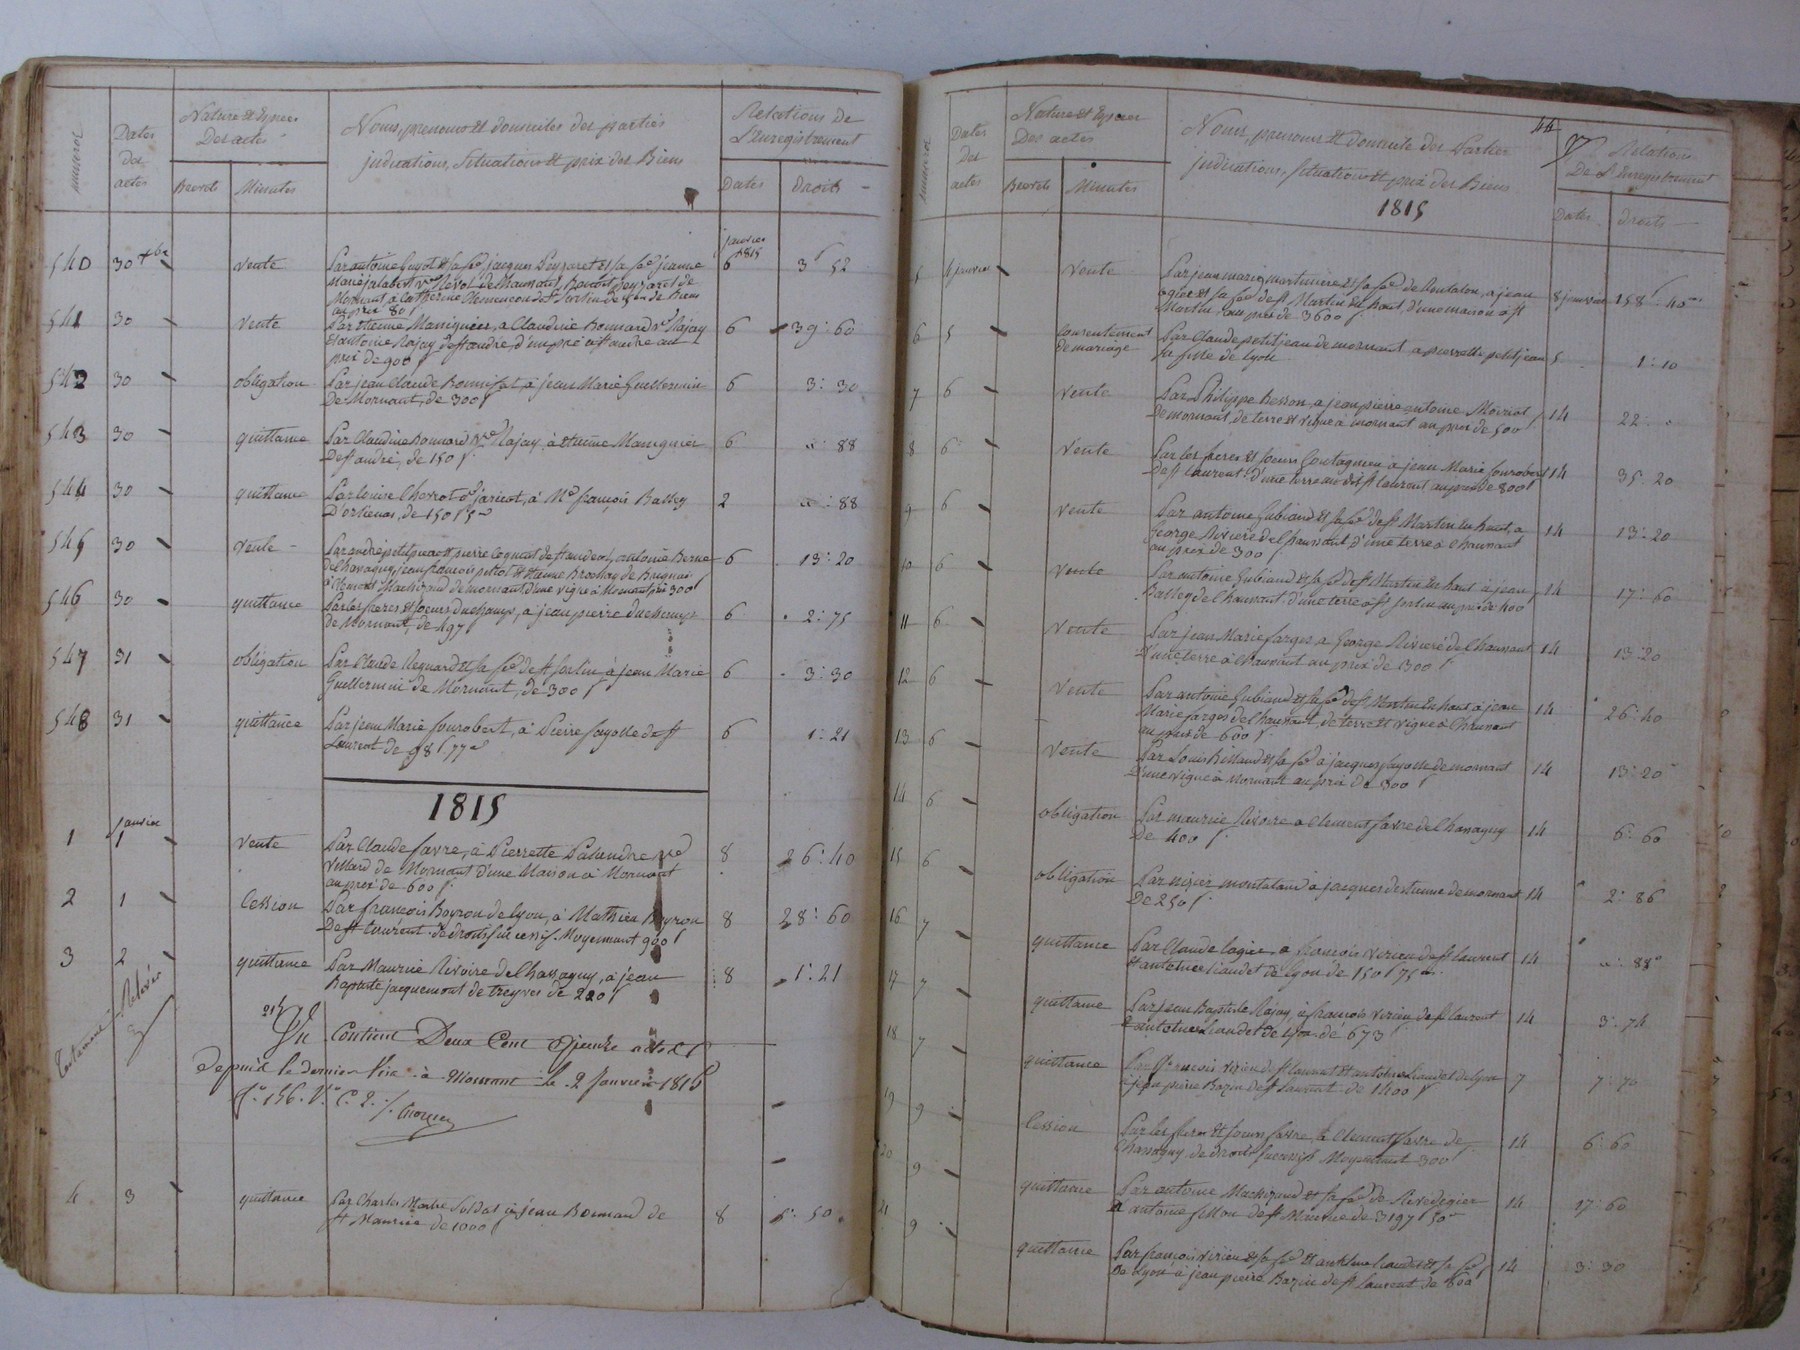 numeros
Dates des actes
Nature et Especes Des actes
Brevets
Minutes
Noms, prenoms et domiciles des parties
indications, Situations et prix des Biens
Relations de l'Enregistrement
Dates
Droits
janvier 1815
540 30 xbre vente Par antoine Guyot et sa fe jacques Peyzaret et sa fe jeanne 6 3f 52
Marie jalabert ve de Chaussant, Benoit Peyzaret de
Mornant a Catherine de St Sorlin de de Biens
au prix 80f
541 30 vente Par Etienne Manigniez, a Claudine Bonnard ve Rajay 6 39: 60
et antoine Rajay de St andre, d'un pré a St andre au
prix de 900f
542 30 obligation Par jean Claude a jean Marie Guillermin 6 3: 30
De Mornant, de 300f
543 30 quittance Par Claudine Bonnard ve Rajay, à Etienne Manignier 6 " : 88
De St andré, de 150f
544 30 quittance Par Louise Cherrot ve jaricot, à Me françois Bailley 2 " : 88
D'orlienas, de 150f
545 30 vente Par andré petit et pierre de St andeol, antoine Berne 6 13: 20
de Chavagny, jean françois pitiot et etienne Brossay de Brignais
a Clement Machizaud de mornant d'une vigne à Mornant prix 300f
546 30 quittance Par les freres et soeurs Duchamp, a jean pierre duchamp 6 2: 75
de Mornant, de 497f
547 31 obligation Par Claude Reynard et sa fe de St Sorlin à jean Marie 6 3: 30
Guillermin de Mornant, de 300f
548 31 quittance Par jean Marie fourobert, à Pierre fayolle de St 6 1: 21
Laurent de 98f 77
1815
1 janvier 1 vente Par Claude favre, à Pierrette Palandre ve 8 26: 40
Villard de Mornant d'une Maison à Mornant
au prix de 600f
2 1 Cession Par françois Boyron de lyon, à Mathieu Boyron 8 28: 60
De St Laurent de droits successifs Moyennant 900f
3 2 quittance Par Maurice Rivoire de Chassagny, a jean 8 1: 21
Baptiste jacquemont de treyves de 220f
Testament Relevés
Vu Contient Deux Cent actes
depuis le dernier Visa à Mornant le 2 janvier 1815
fo 156. Vo C. 2.
4 3 quittance Par Charles Soldat à jean Bonnard de 8 5: 50
St Maurice de 1000f
44
numeros
Dates des actes
Nature et Especes Des actes
Brevets
Minutes
Noms, prenoms et domicile des Parties
indications, Situations et prix des Biens
1815
Relations De l'Enregistrement
Dates
Droits
5 4 janvier vente Par jean marie martiniere et sa fe de Rontalon, a jean 8 janvier 158f 40
ogier et sa fe de St Martin en haut, d'une maison a St
Martin au prix de 3600f
6 5 Consentement de mariage Par Claude petitjean de mornant a pierrette petitjean 5 1: 10
sa fille de lyon
7 6 vente Par Philippe Besson, a jean pierre antoine 14 22: "
De mornant, de terre et vigne à mornant au prix de 500f
8 6 vente Par les freres et soeurs Coutagneu a jean Marie fourobert 14 35: 20
De St Laurent d'une terre au dit St laurent au prix de 800f
9 6 vente Par antoine Gubiand et sa fe de St Martin en haut, a 14 13: 20
George Riviere de Chaussant d'une terre à Chaussant
au prix de 300f
10 6 vente Par antoine Gubiand et sa fe de St Martin en haut à jean 14 17: 60
Bailley de Chaussant d'une terre à St Sorlin au prix de 400
11 6 vente Par jean Marie farges a George Riviere de Chaussant 14 13: 20
D'une terre à Chaussant au prix de 300f
12 6 vente Par antoine Gubiand et sa fe de St Martin en haut a jean 14 26: 40
Marie farges de Chaussant, de terre et vigne à Chaussant
au prix de 600f
13 6 vente Par Louis Billaud et sa fe à jacques fayolle de mornant 14 13: 20
D'une vigne à Mornant au prix de 300f
14 6 obligation Par maurice Rivoire a Clement favre de Chassagny 14 6: 60
De 400f
15 6 obligation Par nizier montaland à jacques destienne de mornant 14 2: 86
De 250f
16 7 quittance Par Claude lagier a françois virieu de St laurent 14 " : 88
et antoine liaudet de lyon de 150f 75
17 7 quittance Par jean Baptiste Rajay, à françois virieu de St laurent 14 3: 74
et antoine Liaudet de lyon de 673f
18 7 quittance Par françois virieu de St laurent et antoine Liaudet de lyon 7 7: 70
a jean pierre Bazin de St laurent de 1400f
19 9 Cession Par les freres et soeurs favre, à Clement favre de 14 6: 60
Chassagny de droits successifs Moyennant 300f
20 9 quittance Par antoine Machizaud et sa fe de Rivedegier 14 17: 60
a antoine fillon de St Maurice de 3197f 50
21 9 quittance Par françois virieu et sa fe et antoine Liaudet et sa fe 14 3: 30
De Lyon à jean pierre Bazin de St Laurent de 600f